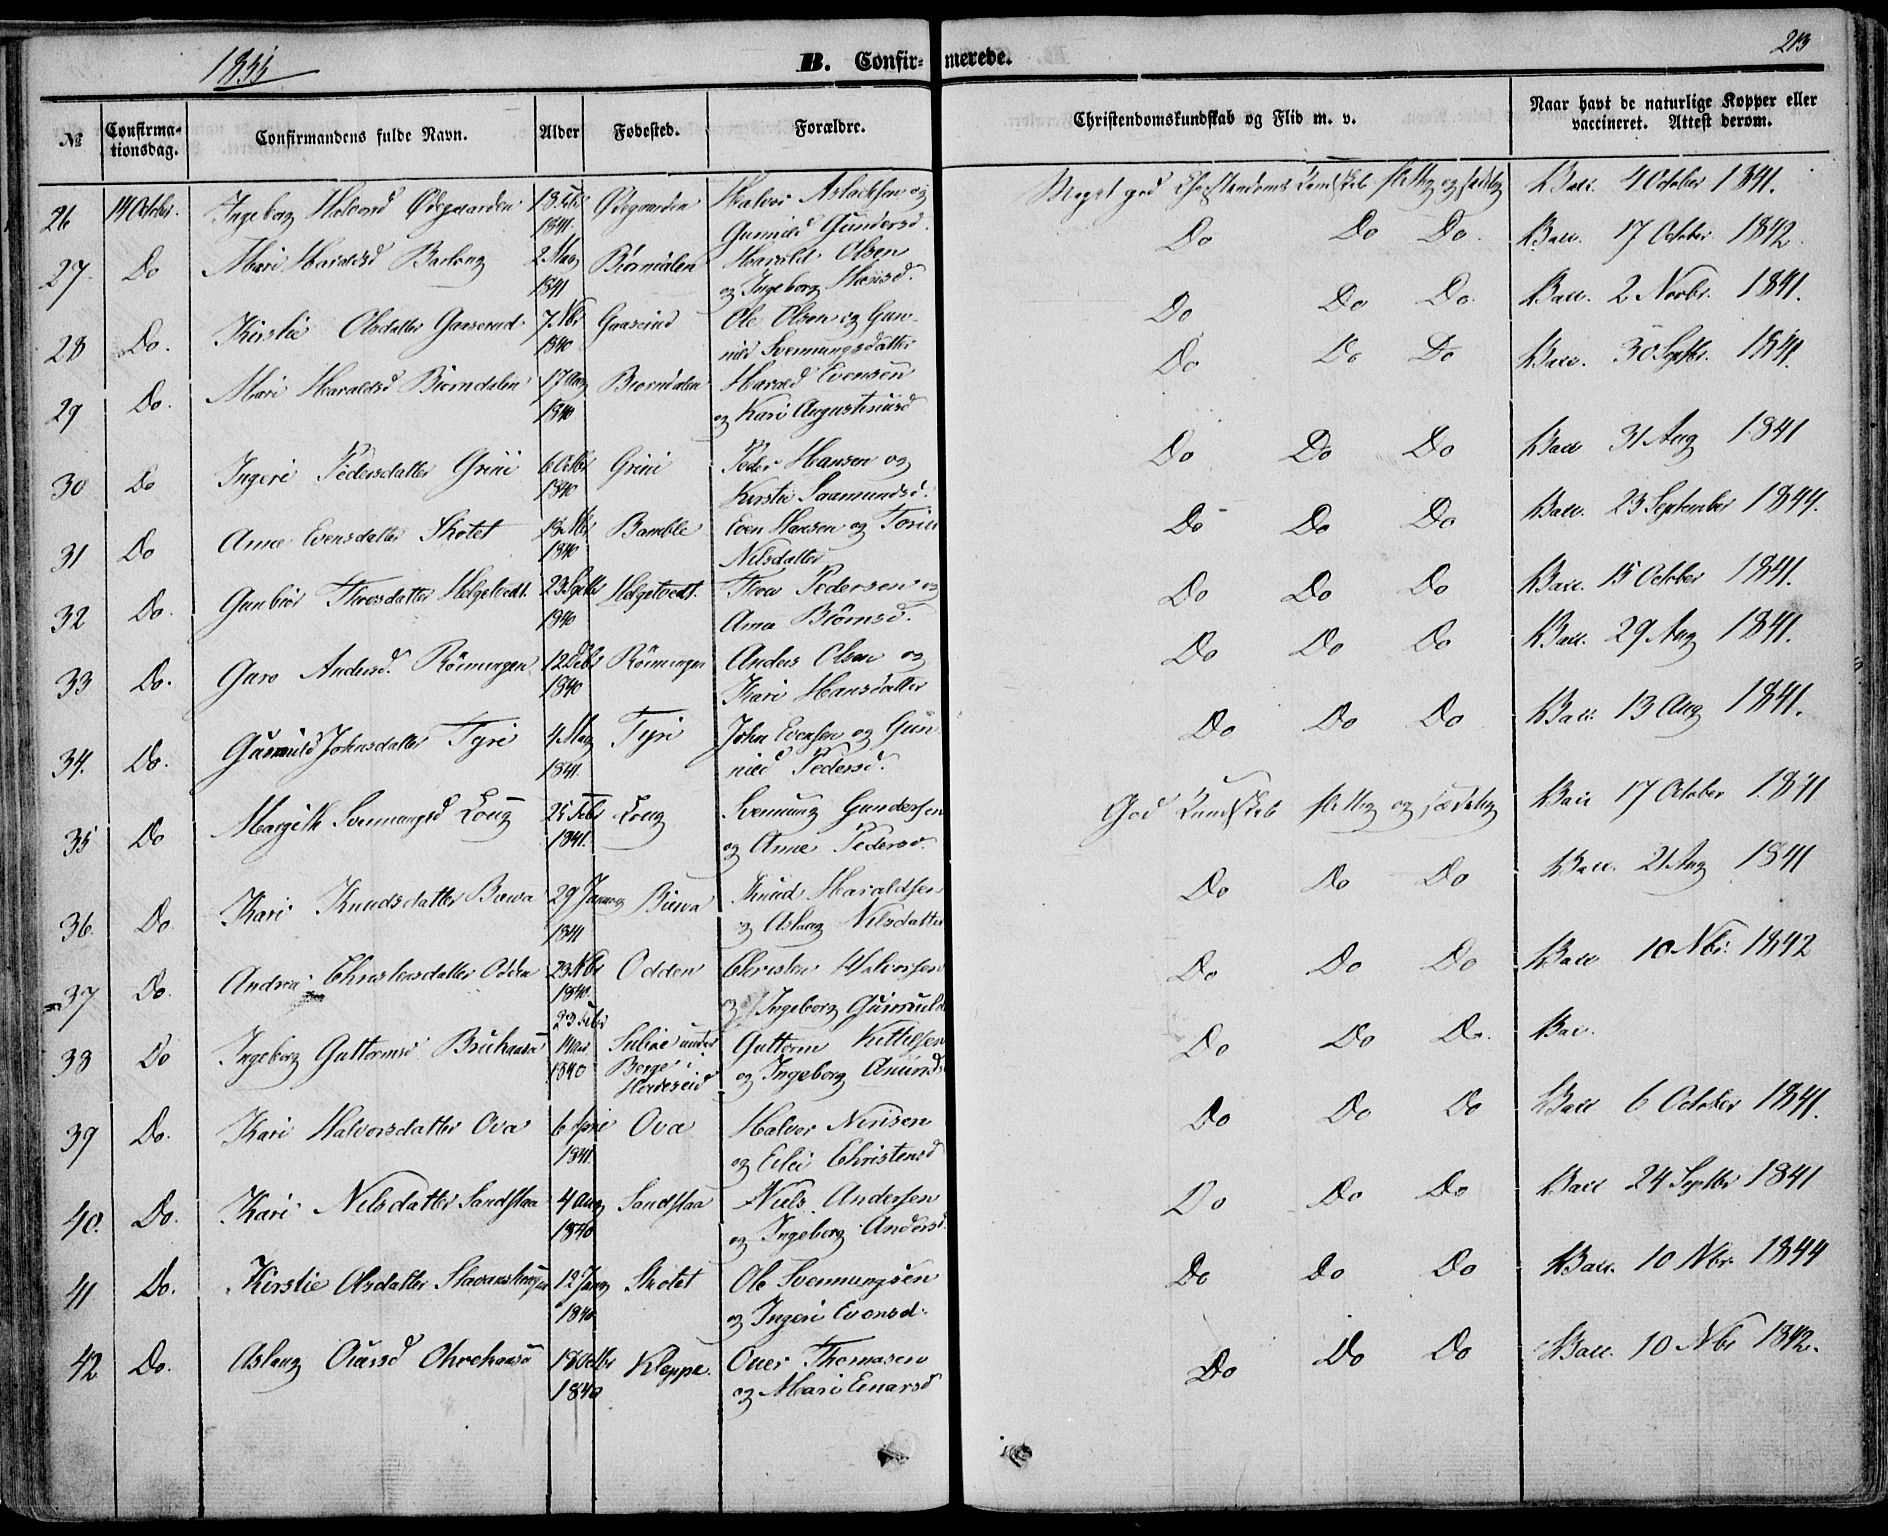 1855
B. Confir-merede.
213
№
Confirma-
tionsdag.
Confirmandens fulde Navn.
Alder
Fødested.
Forældre.
Christendomskundskab og Flid m. v.
Naar havt de naturlige Kopper eller
vaccineret. Attest derom.
26 14 October. Ingeborg Halvorsd Ødegaarden 13 Febr Ødegaarden Halvor Aslacksen og Meget god Christendoms Kundskab flittig og sædelig Vacc. 4 October 1841.
1841. Gunnild Gundersd.
27. Do Mari Haraldsd Barloug 2 Marz Biørndalen Harald Olsen Do Do Do. Vacc. 17 October 1842.
1841 og Ingeborg Hansd.
28 Do. Kirstie Olsdatter Gaaserud 7 Nbr Gaaserud Ole Olsen og Gun- Do Do Do. Vacc. 2 Novbr. 1841.
1840 nild Svennungsdatter
29 Do. Mari Haraldsd Biørndalen 17 Aug Biørndalen Harald Evensen Do Do Do Vacc. 30 Septbr. 1841.
1840 og Kari Augustinusd
30 Do Ingeri Pedersdatter Grini 6 Octbr Grini Peder Hansen og Do Do Do Vacc 31 Aug 1841
1840 Kirstie Saamundsd.
31 Do Anne Evensdatter Skotet 18 Nbr Bamble Even Hansen og Torin Do Do Do Vacc. 23 September 1844.
1840 Nilsdatter
32 Do. Gunbiør Thorsdatter Helgetvedt. 23 Septbr Helgetvedt. Thor Pedersen og Do Do Do Vacc. 15 October 1841.
1840 Anna Biørnsd.
33 Do. Guro Andersd. Rønningen 12 Debr Rønningen Anders Olsen og Do Do Do Vacc. 29 Aug 1841.
1840 Kari Hansdatter
34. Do. Gunnild Johnsdatter Tyri 4 Marz Tyri John Evensen og Gun Do Do Do Vacc. 13 Aug 1841.
1841. nild Pedersd.
35 Do Margith Svennungsd Loug 25 Febr Loug Svennung Gundersen God Kundskab flittig og sædelig Vacc 17 October 1841
1841. og Anne Pedersd.
36. Do. Kari Knudsdatter Bæva 29 Januar Bæva Knud Haraldsen Do Do Do Vacc. 21 Aug 1841
1841 og Aslaug Nilsdatter
37 Do. Andrea Christensdatter Odden 23 Nbr Odden Christen Halvorsen Do Do Do Vacc 10 Nbr. 1842
1840. og Ingeborg Gunnuld
38 Do Ingeborg Guttormsd 23 Febr under Guttorm Kittelsen Do Do Do. Vac.
1840 Borge i og Ingeborg Amunds
Hvideseid
39 Do. Kari Halvorsdatter Ova 6 April Ova Halvor Nirisen Do Do Do Vacc 6 October 1841.
1841. og Eilei Christensd
40. Do. Kari Nilsdatter Sandstaa 4 Aug Sandstaa Niels Andersen Do Do Do Vacc 24 Septbr 1841
1840 og Ingeborg Andersd.
41 Do. Kirstie Olsdatter 12 Janr Skotet Ole Svennungsen Do Do Do Vacc. 10 Nbr. 1844
1840 og Ingeri Evensd.
42 Do. Aslaug Ouersd 18 Octbr Kleppe. Ouer Thomasen Do Do Do Vacc. 10 Nbr 1842.
1840 og Mari Einarsd